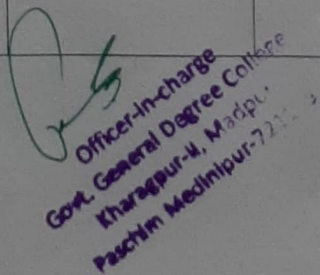 Officer-in-charge
Govt. General Degree College
Kharagpur-II, Madpur
Paschim Medinipur-721